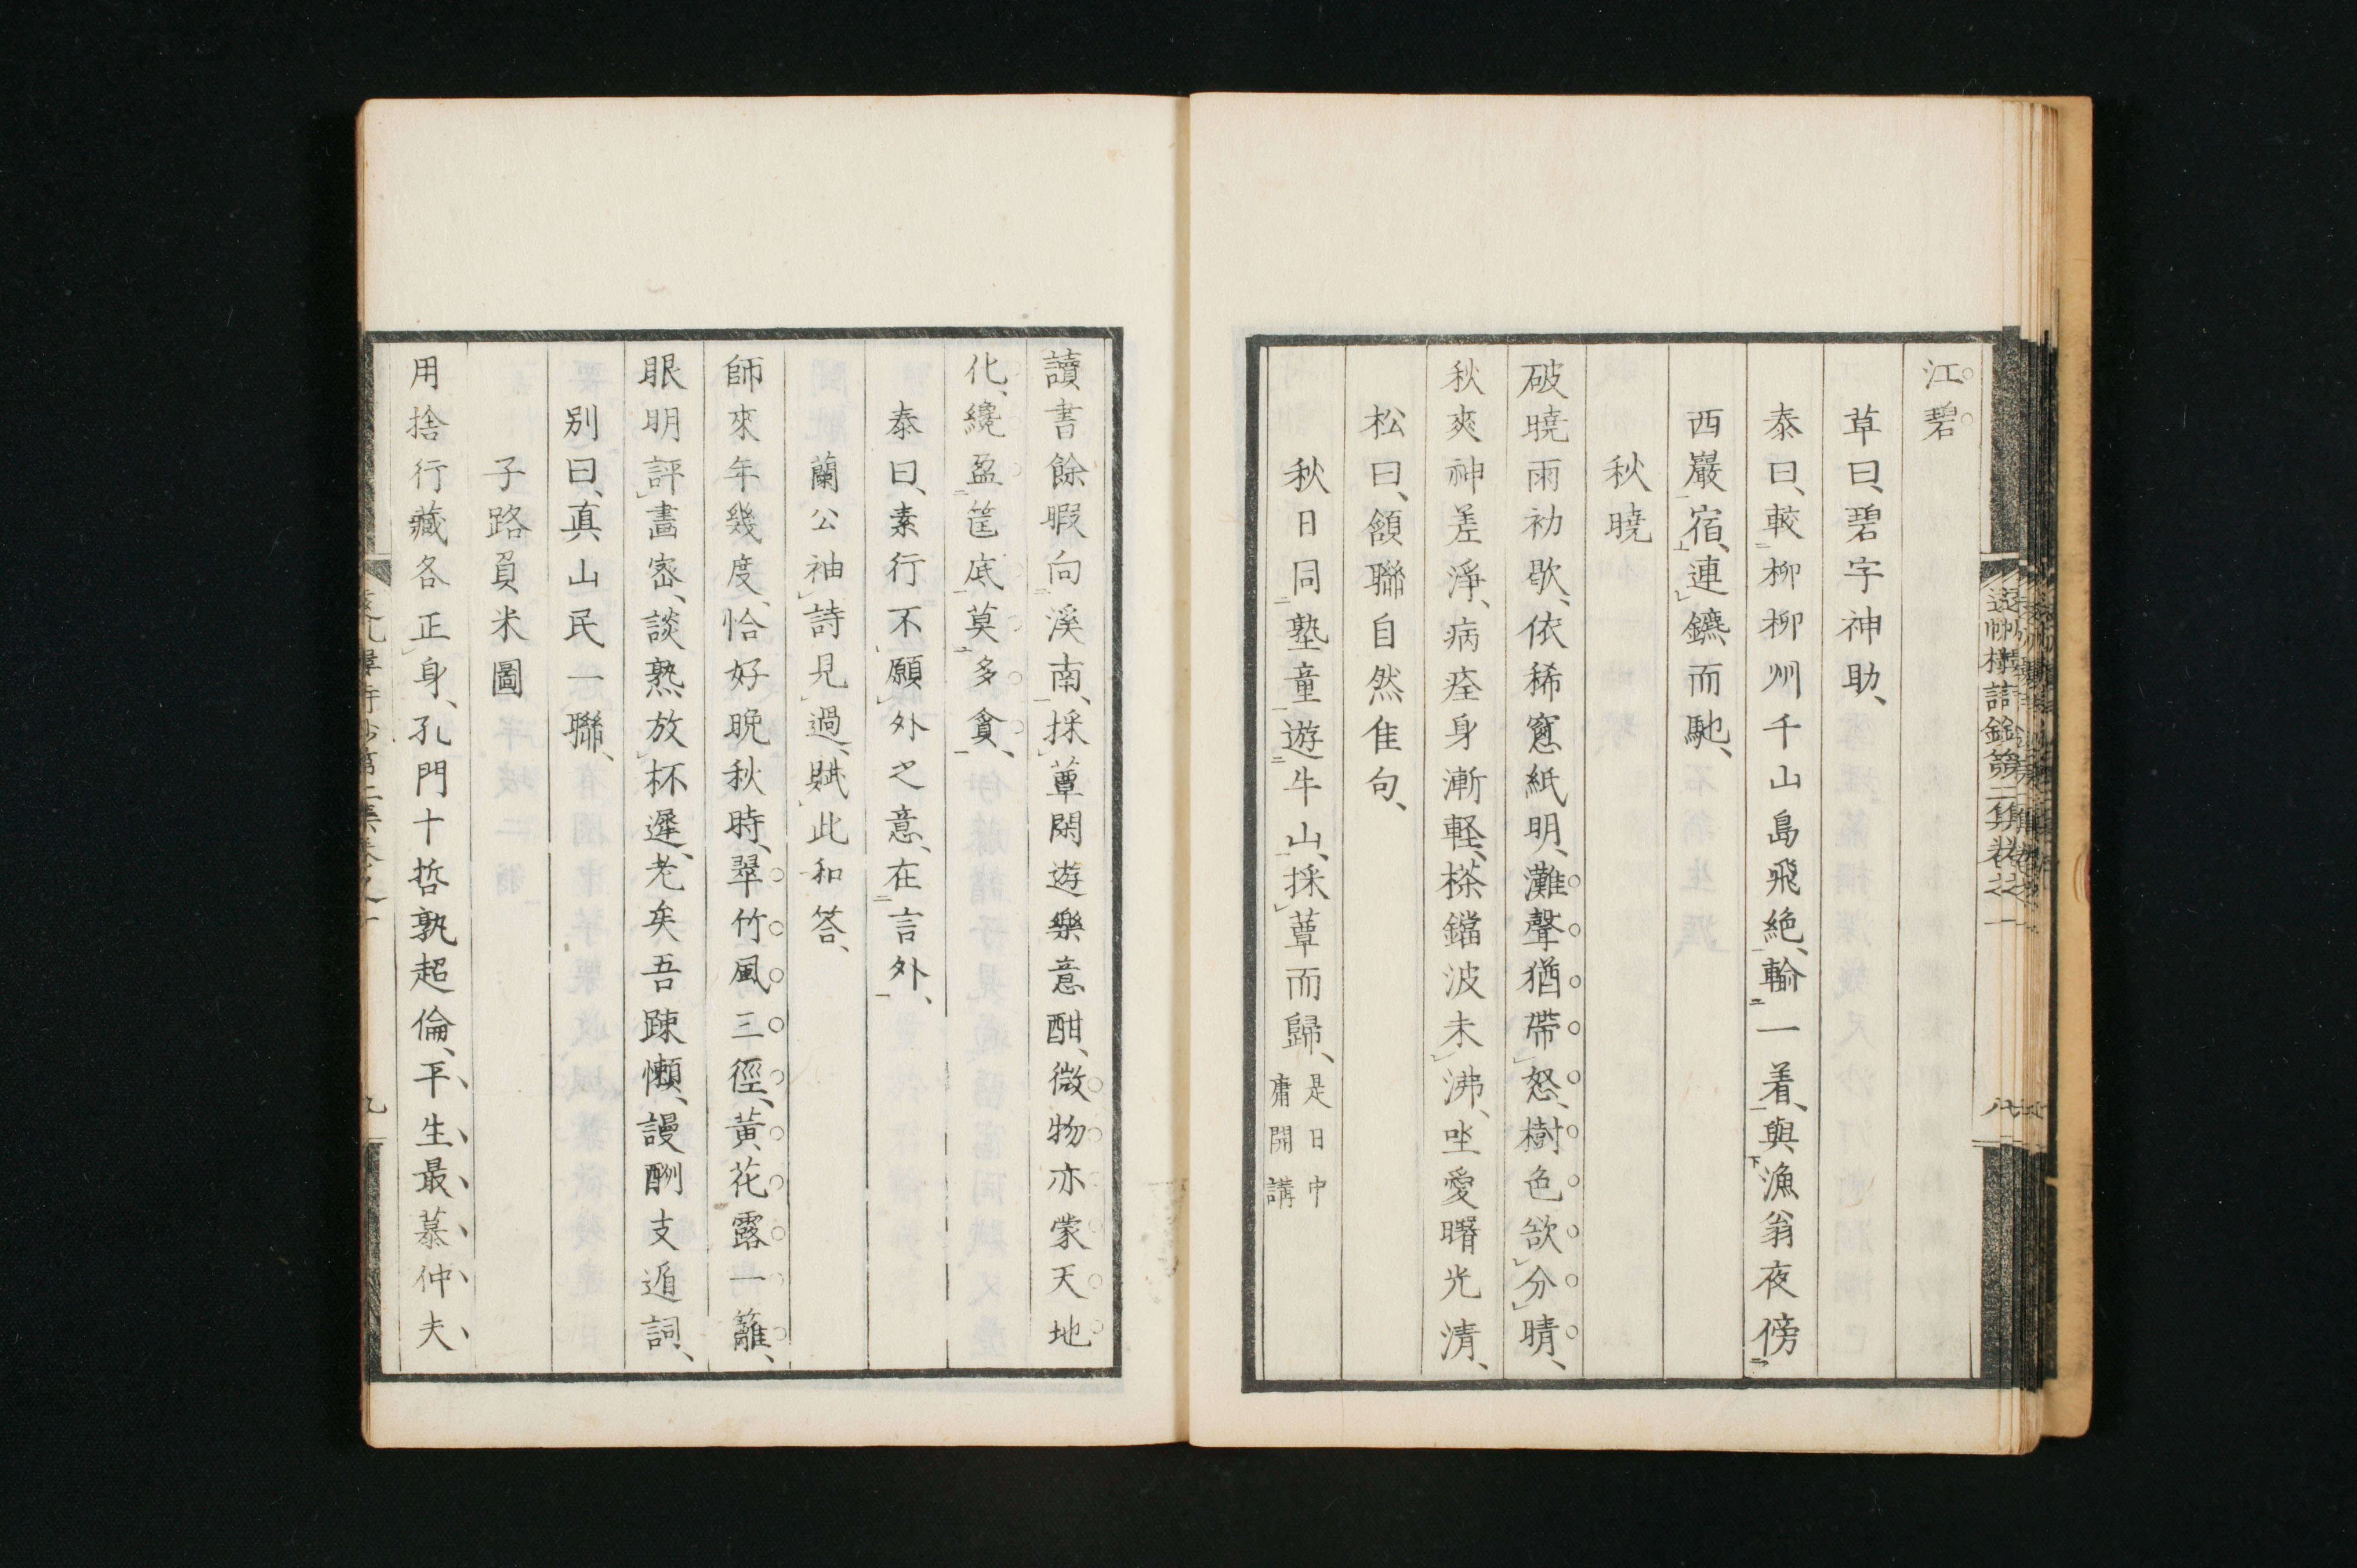 江碧
草曰、碧字神助、
泰曰、較柳柳州千山鳥飛絶、輸一着、與漁翁夜傍
西巖宿、連鑣而馳、
秋曉
破曉雨初歇、依稀窻紙明、灘聲猶帶怒、樹色欲分晴、
秋爽神差淨、病痊身漸軽、茶鐺波未沸、坐愛曙光清、
松曰、頷聯自然佳句、
秋日同塾童遊牛山、採蕈而歸、是日中庸開講
讀書餘暇向溪南、採蕈閑遊樂意酣、微物亦蒙天地
化、纔盈筐底莫多貪、
泰曰、素行不願外之意、在言外、
蘭公袖詩見過、賦此和答、
師來年幾度、恰好晩秋時、翠竹風三徑、黃花露一籬、
眼明評畫宻、談熟放杯遲、老矣吾踈懶、謾酬支遁詞、
別曰、真山民一聯、
子路負米圖
用捨行藏各正身、孔門十哲孰超倫、平生最慕仲夫
九